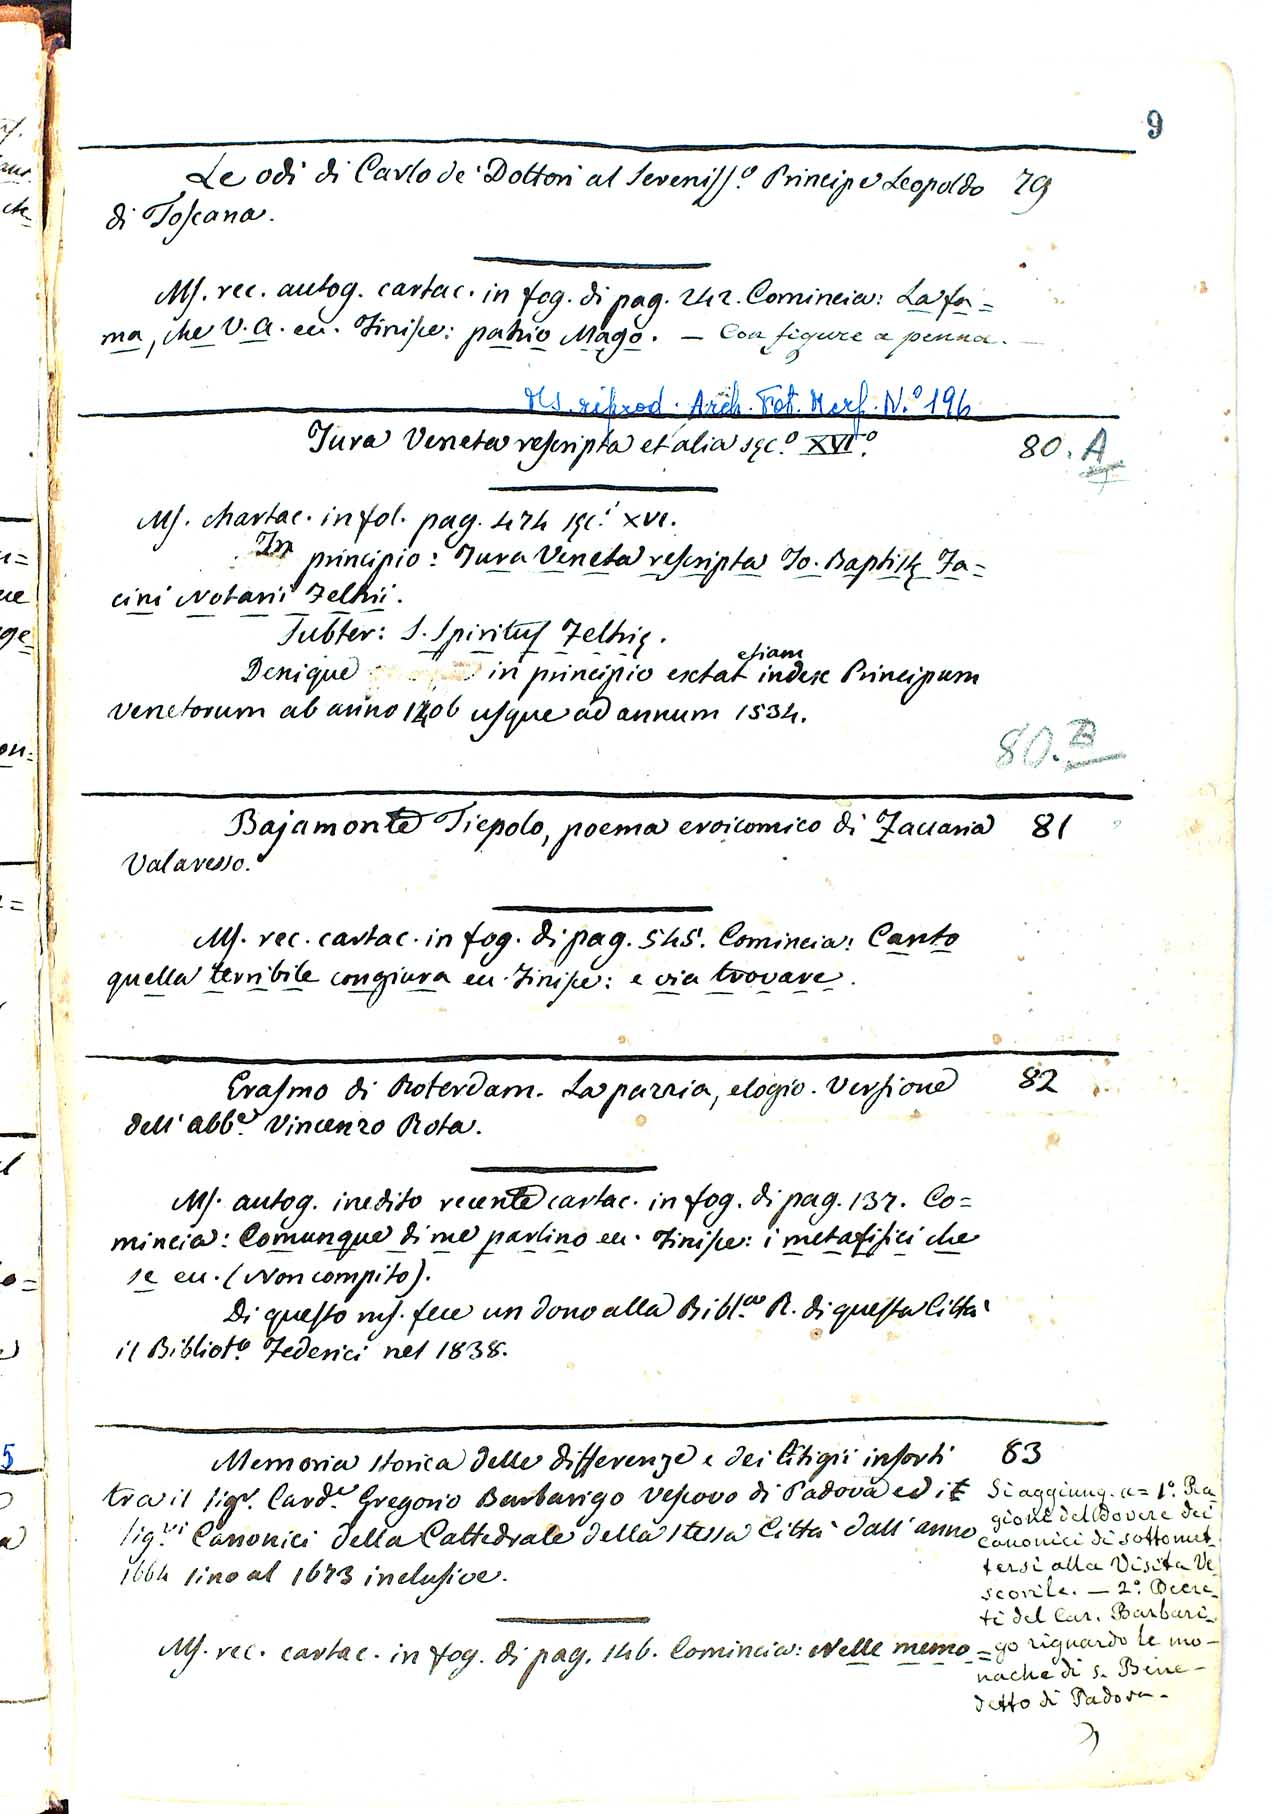 9
Le odi di Carlo de' Dottori al Sereniss.º Principe Leopoldo 79
di Toscana.
Ms. rec. autog. cartac. in fog. di pag. 242. Comincia: La fa=
ma, che V. A. ec. Finisce: patrio Mago. — Con figure a penna. —
Ms. riprod. Arch. Fot. Marc. N.º 196
Jura Veneta rescripta et alia sęc.º XVI.º 80. A
Ms. chartac. in fol. pag. 474 sęc.i XVI.
In principio: Jura Veneta rescripta Jo. Baptistę Fa=
cini Notarii Feltrii.
Subter: S. Spiritus Feltrię.
Denique in principio extat etiam index Principum
Venetorum ab anno 1706 usque ad annum 1534.
80. B
Bajamonte Tiepolo, poema eroicomico di Zaccaria 81
Valaresso.
Ms. rec. cartac. in fog. di pag. 545. Comincia: Canto
quella terribile congiura ec. Finisce: e via trovare.
Erasmo di Roterdam. La pazzia, elogio. Versione 82
dell' abb.e Vincenzo Rota.
Ms. autog. inedito recente cartac. in fog. di pag. 137. Co=
mincia: Comunque di me parlino ec. Finisce: i metafisici che
se ec. (Non compito).
Di questo ms. fece un dono alla Bibl.ca R. di questa Città
il Bibliot.o Federici nel 1838.
Memoria storica delle differenze e dei litigii insorti 83
tra il sig.r Card.e Gregorio Barbarigo Vescovo di Padova ed it
sig.ri Canonici della Cattedrale della stessa Città dall' anno
1664 sino al 1673 inclusive.
Ms. rec. cartac. in fog. di pag. 146. Comincia: Nelle memo=
Si aggiung. a= 1º. Ra
gione del dovere dei
canonici di sottomet-
tersi alla Visita Ve
scovile. — 2º. Decre-
ti del Car. Barbari-
go riguardo le mo-
nache di S. Bene-
detto di Padova.